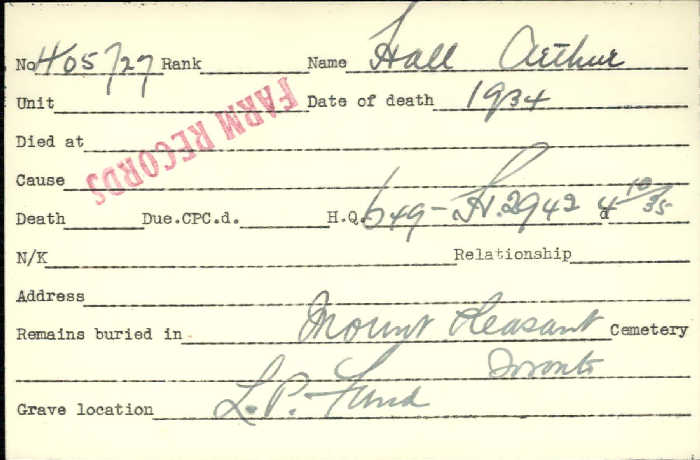 No 405727 Rank Name Hall Arthur
Unit Date of death 1934
FARM RECORDS
Died at
Cause
Death Due.CPC.d. H.Q. 649-H.2942 d
N/K Relationship
Address
Remains buried in Mount Pleasant Cemetery
Toronto
Grave location L.P. Fund